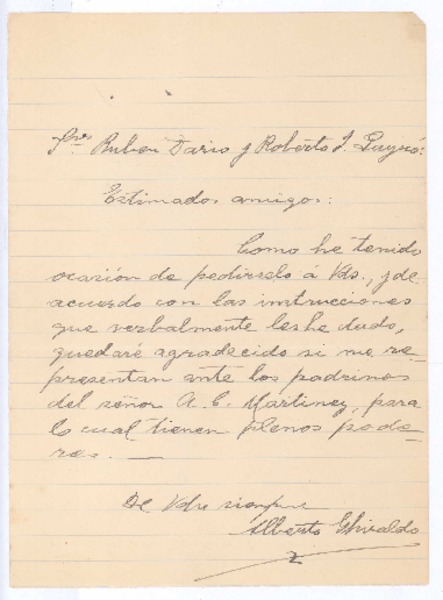 Sres Ruben Dario y Roberto J. Payró:
Estimados amigos:
Como he tenido
ocazión de pedirselo á Vds., y de
acuerdo con las instrucciones
que verbalmente les he dado,
quedaré agradecido si me re-
presentan ante los padrinos
del señor A. C. Martinez, para
lo cual tienen plenos pode-
res. —
De Vds siempre
Alberto Ghiraldo